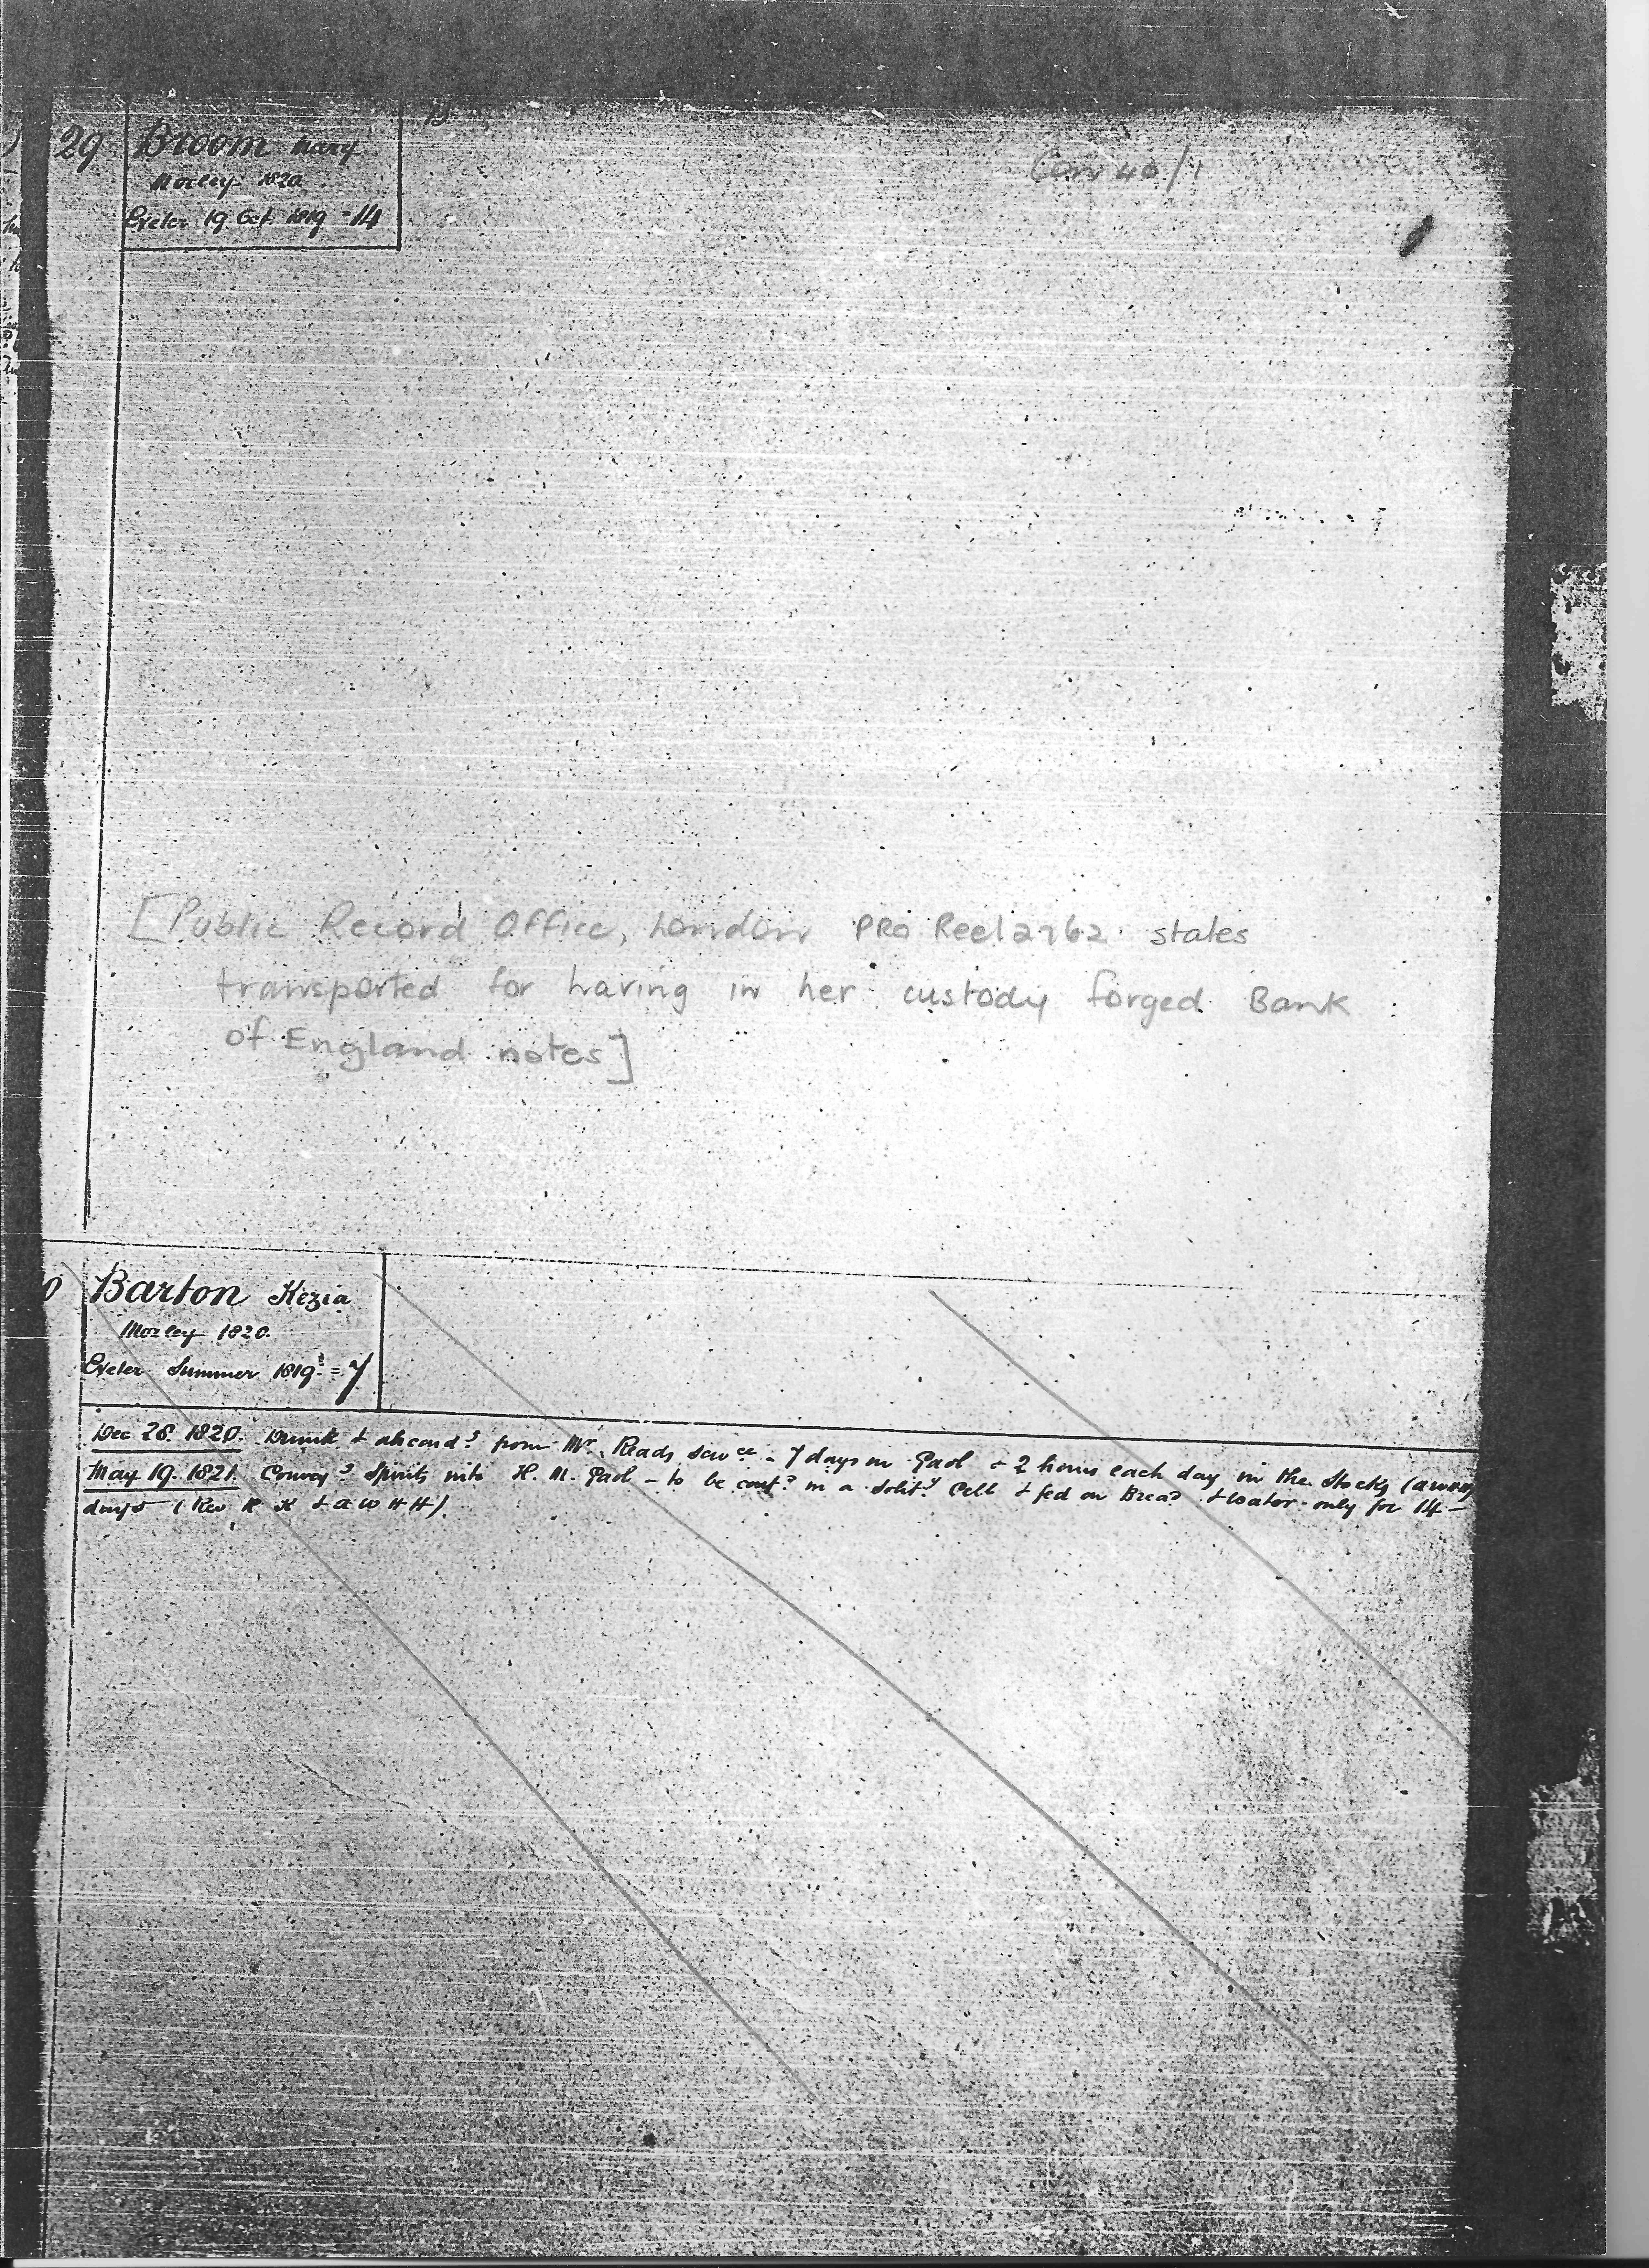 29 Broom Mary
Con 40/1
Morley 1820
Exeter 19 Oct. 1819 = 14
[Public Record Office, London PRO Reel 2762 states
transported for having in her custody forged Bank
of England notes]
Barton Kezia
Morley 1820.
Exeter Summer 1819 = 7
Dec 28. 1820. Drunk & abscond.d from Mr. Reads serv.ce - 7 days in Gaol & 2 hours each day in the Stocks
May 19. 1821. Convey.g Spirits into H. M. Gaol - to be conf.d in a solit.y Cell & fed on Bread & water only for 14
days (Rev R K & A W H H).